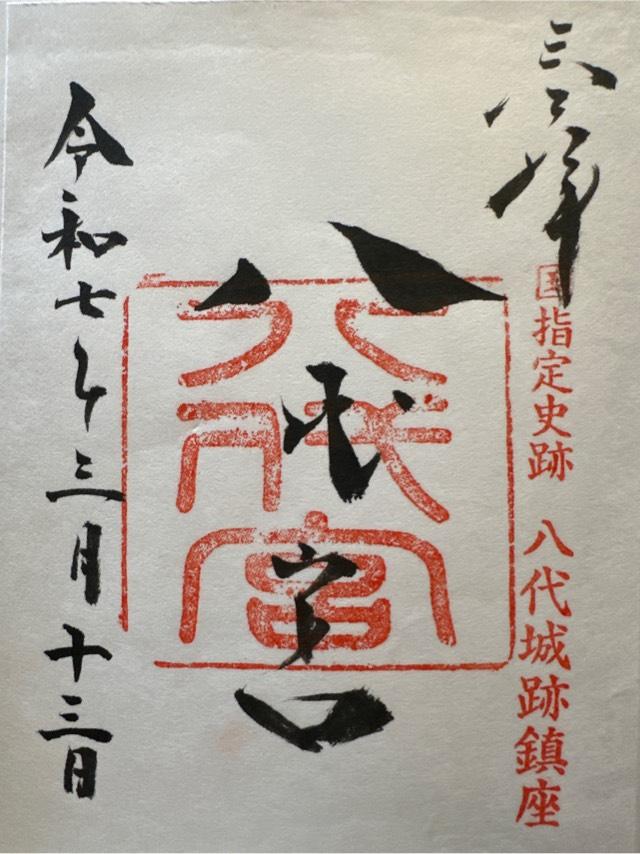 奉拝
国指定史跡 八代城跡鎮座
八代宮
八代宮
令和七年三月十三日